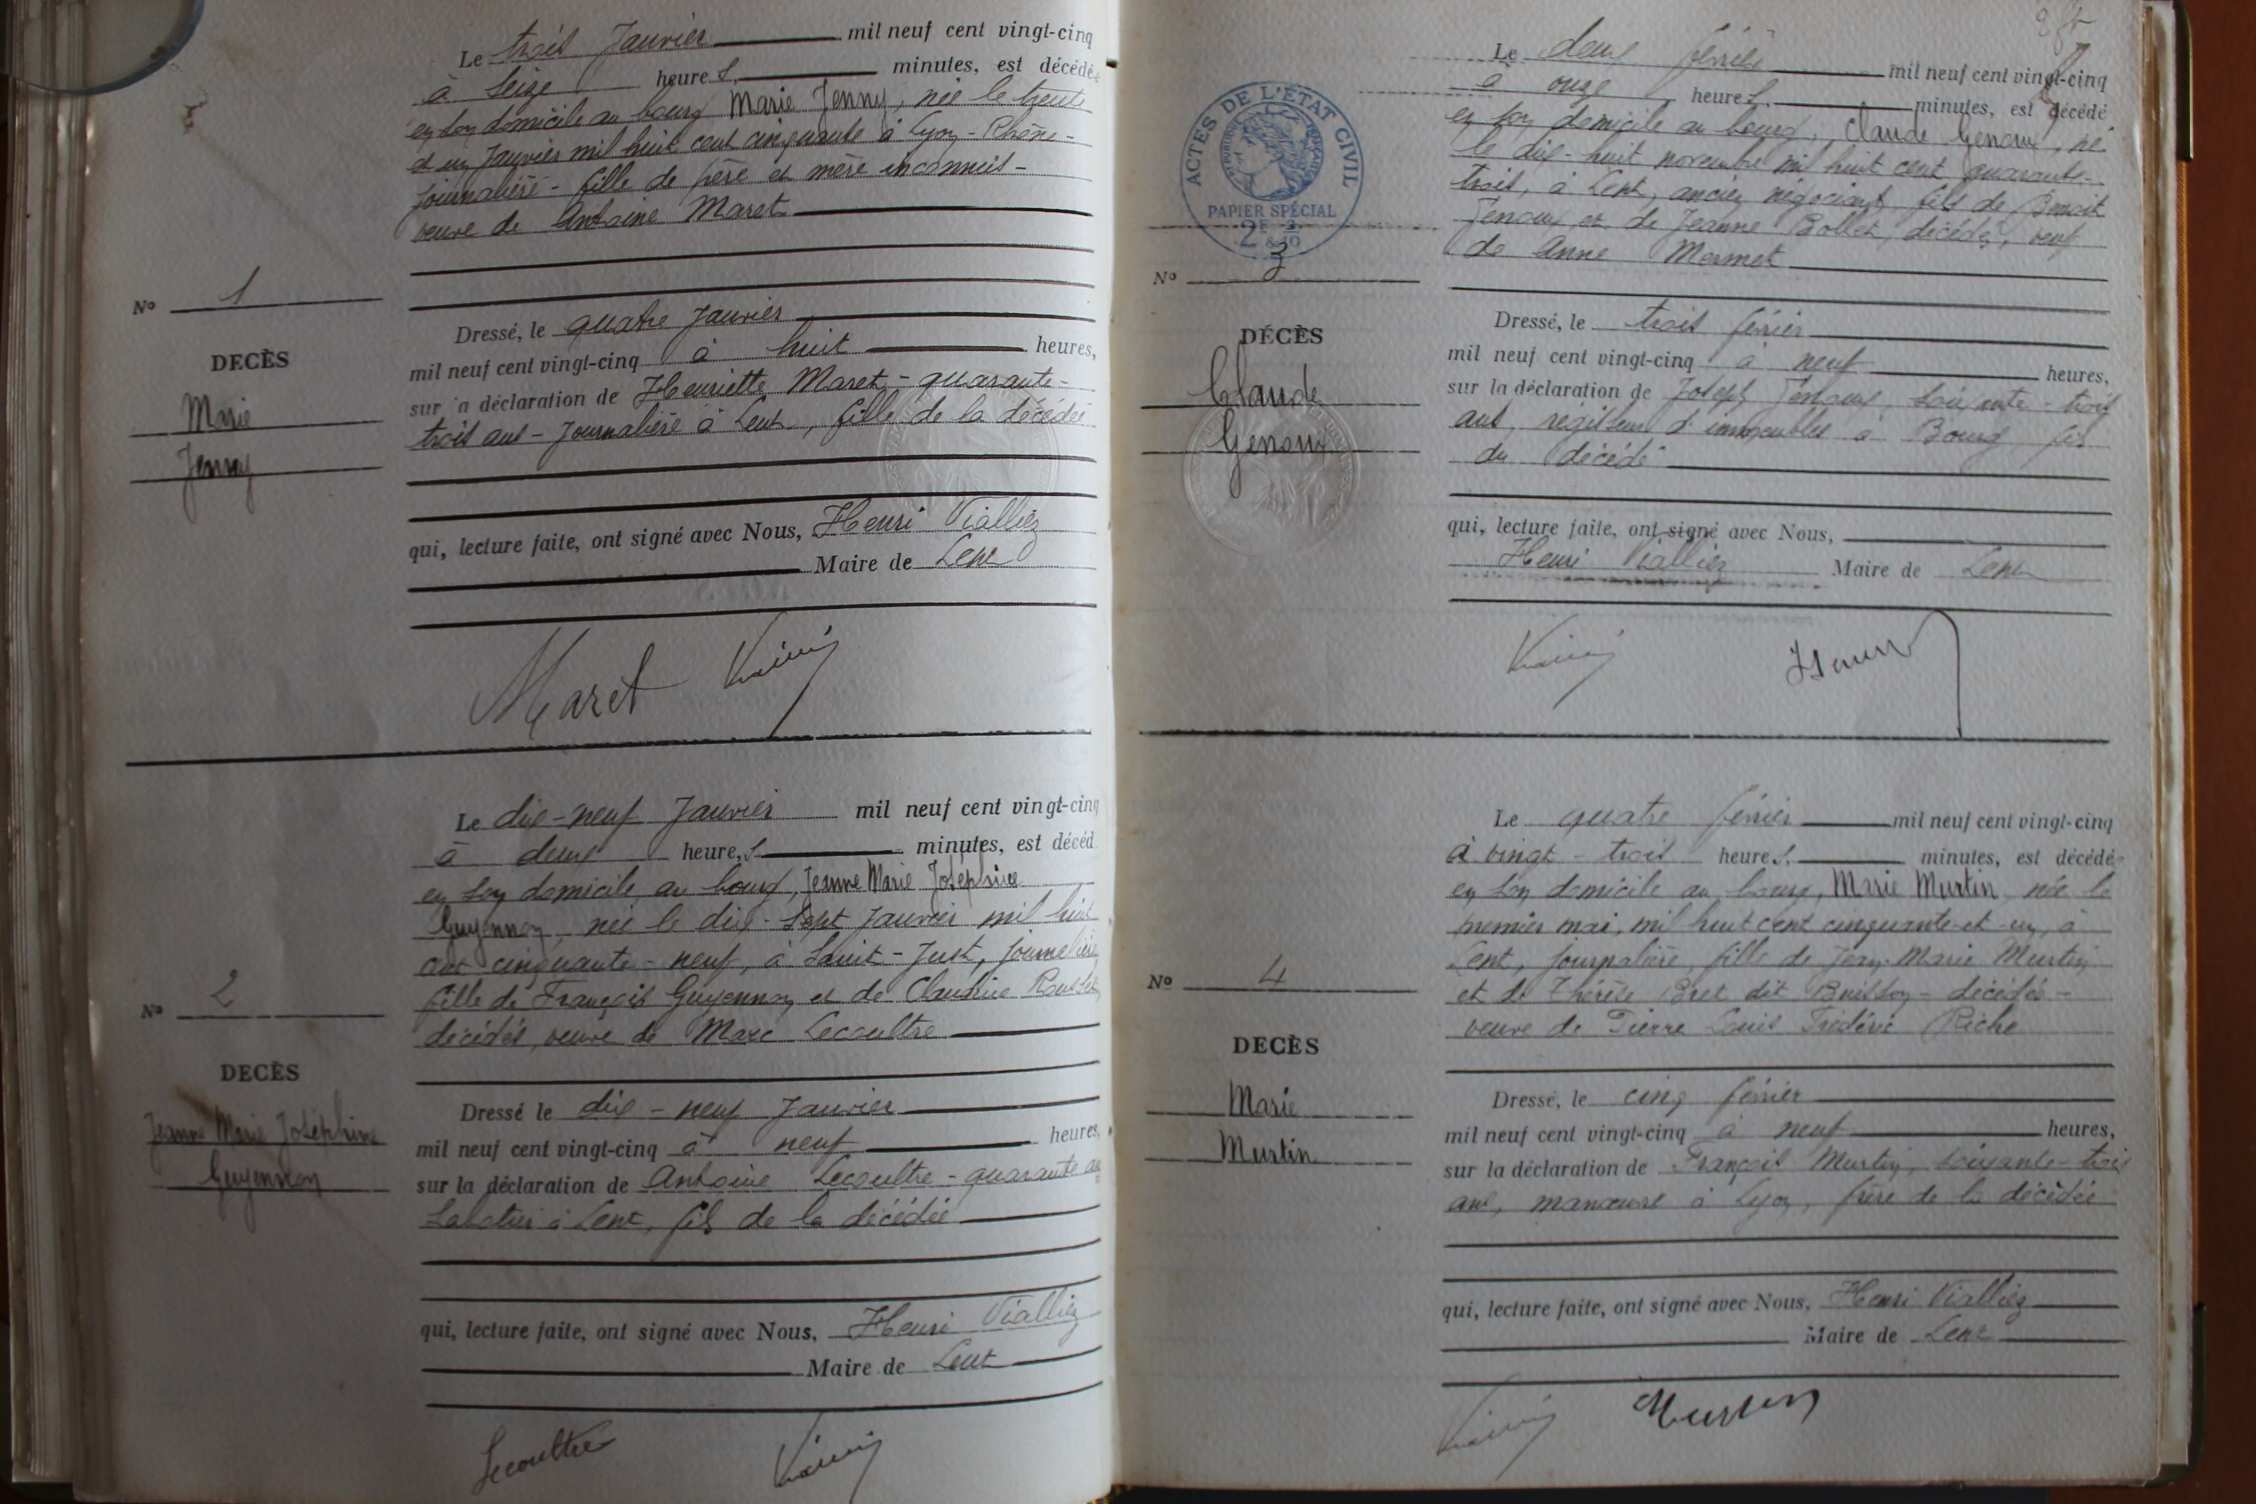 Le trois Janvier mil neuf cent vingt-cinq
à seize heures minutes, est décédée
en son domicile au bourg Marie Jenny, née le trente
et un Janvier mil huit cent cinquante à Lyon - Rhône -
journalière - fille de père et mère inconnus -
veuve de Antoine Maret
No 1
DECÈS
Marie
Jenny
Dressé, le quatre Janvier
mil neuf cent vingt-cinq à huit heures,
sur la déclaration de Henriette Maret - quarante-
trois ans - journalière à Lent, fille de la décédée
qui, lecture faite, ont signé avec Nous, Henri Vialliez
Maire de Lent
Maret
Le dix-neuf Janvier mil neuf cent vingt-cinq
à deux heures minutes, est décéd
en son domicile au bourg, Jeanne Marie Joséphine
Guyennon, née le dix-sept Janvier mil huit
cent cinquante-neuf, à Saint-Just, journalière,
fille de François Guyennon et de Claudine Rousset,
décédés, veuve de Marc Lecoultre
No 2
DECÈS
Jeanne Marie Joséphine
Guyennon
Dressé le dix-neuf Janvier
mil neuf cent vingt-cinq à neuf heures,
sur la déclaration de Antoine Lecoultre - quarante ans
à Lent, fils de la décédée
qui, lecture faite, ont signé avec Nous, Henri Vialliez
Maire de Lent
Lecoultre
ACTES DE L'ÉTAT CIVIL
RÉPUBLIQUE FRANÇAISE
PAPIER SPÉCIAL
Le deux février mil neuf cent vingt-cinq
à onze heures minutes, est décédé
en son domicile au bourg, Claude Genoux, né
le dix-huit novembre mil huit cent quarante-
trois, à Lent, ancien négociant fils de Benoit
Genoux et de Jeanne Bollet, décédés, veuf
de Anne Mermet
No 3
DÉCÈS
Claude
Genoux
Dressé, le trois février
mil neuf cent vingt-cinq à neuf heures,
sur la déclaration de Joseph Genoux, soixante-trois
ans, régisseur d'immeubles à Bourg fils
du décédé
qui, lecture faite, ont signé avec Nous,
Henri Vialliez Maire de Lent
Le quatre février mil neuf cent vingt-cinq
à vingt-trois heures minutes, est décédée
en son domicile au bourg, Marie Murtin, née le
premier mai, mil huit cent cinquante-et-un, à
Lent, journalière, fille de Jean-Marie Murtin
et de Thérèse Bret dit Buisson - décédés -
veuve de Pierre Louis Frédéric Riche
No 4
DECÈS
Marie
Murtin
Dressé, le cinq février
mil neuf cent vingt-cinq à neuf heures,
sur la déclaration de François Murtin, soixante-trois
ans, manœuvre à Lyon, frère de la décédée
qui, lecture faite, ont signé avec Nous, Henri Vialliez
Maire de Lent
Murtin